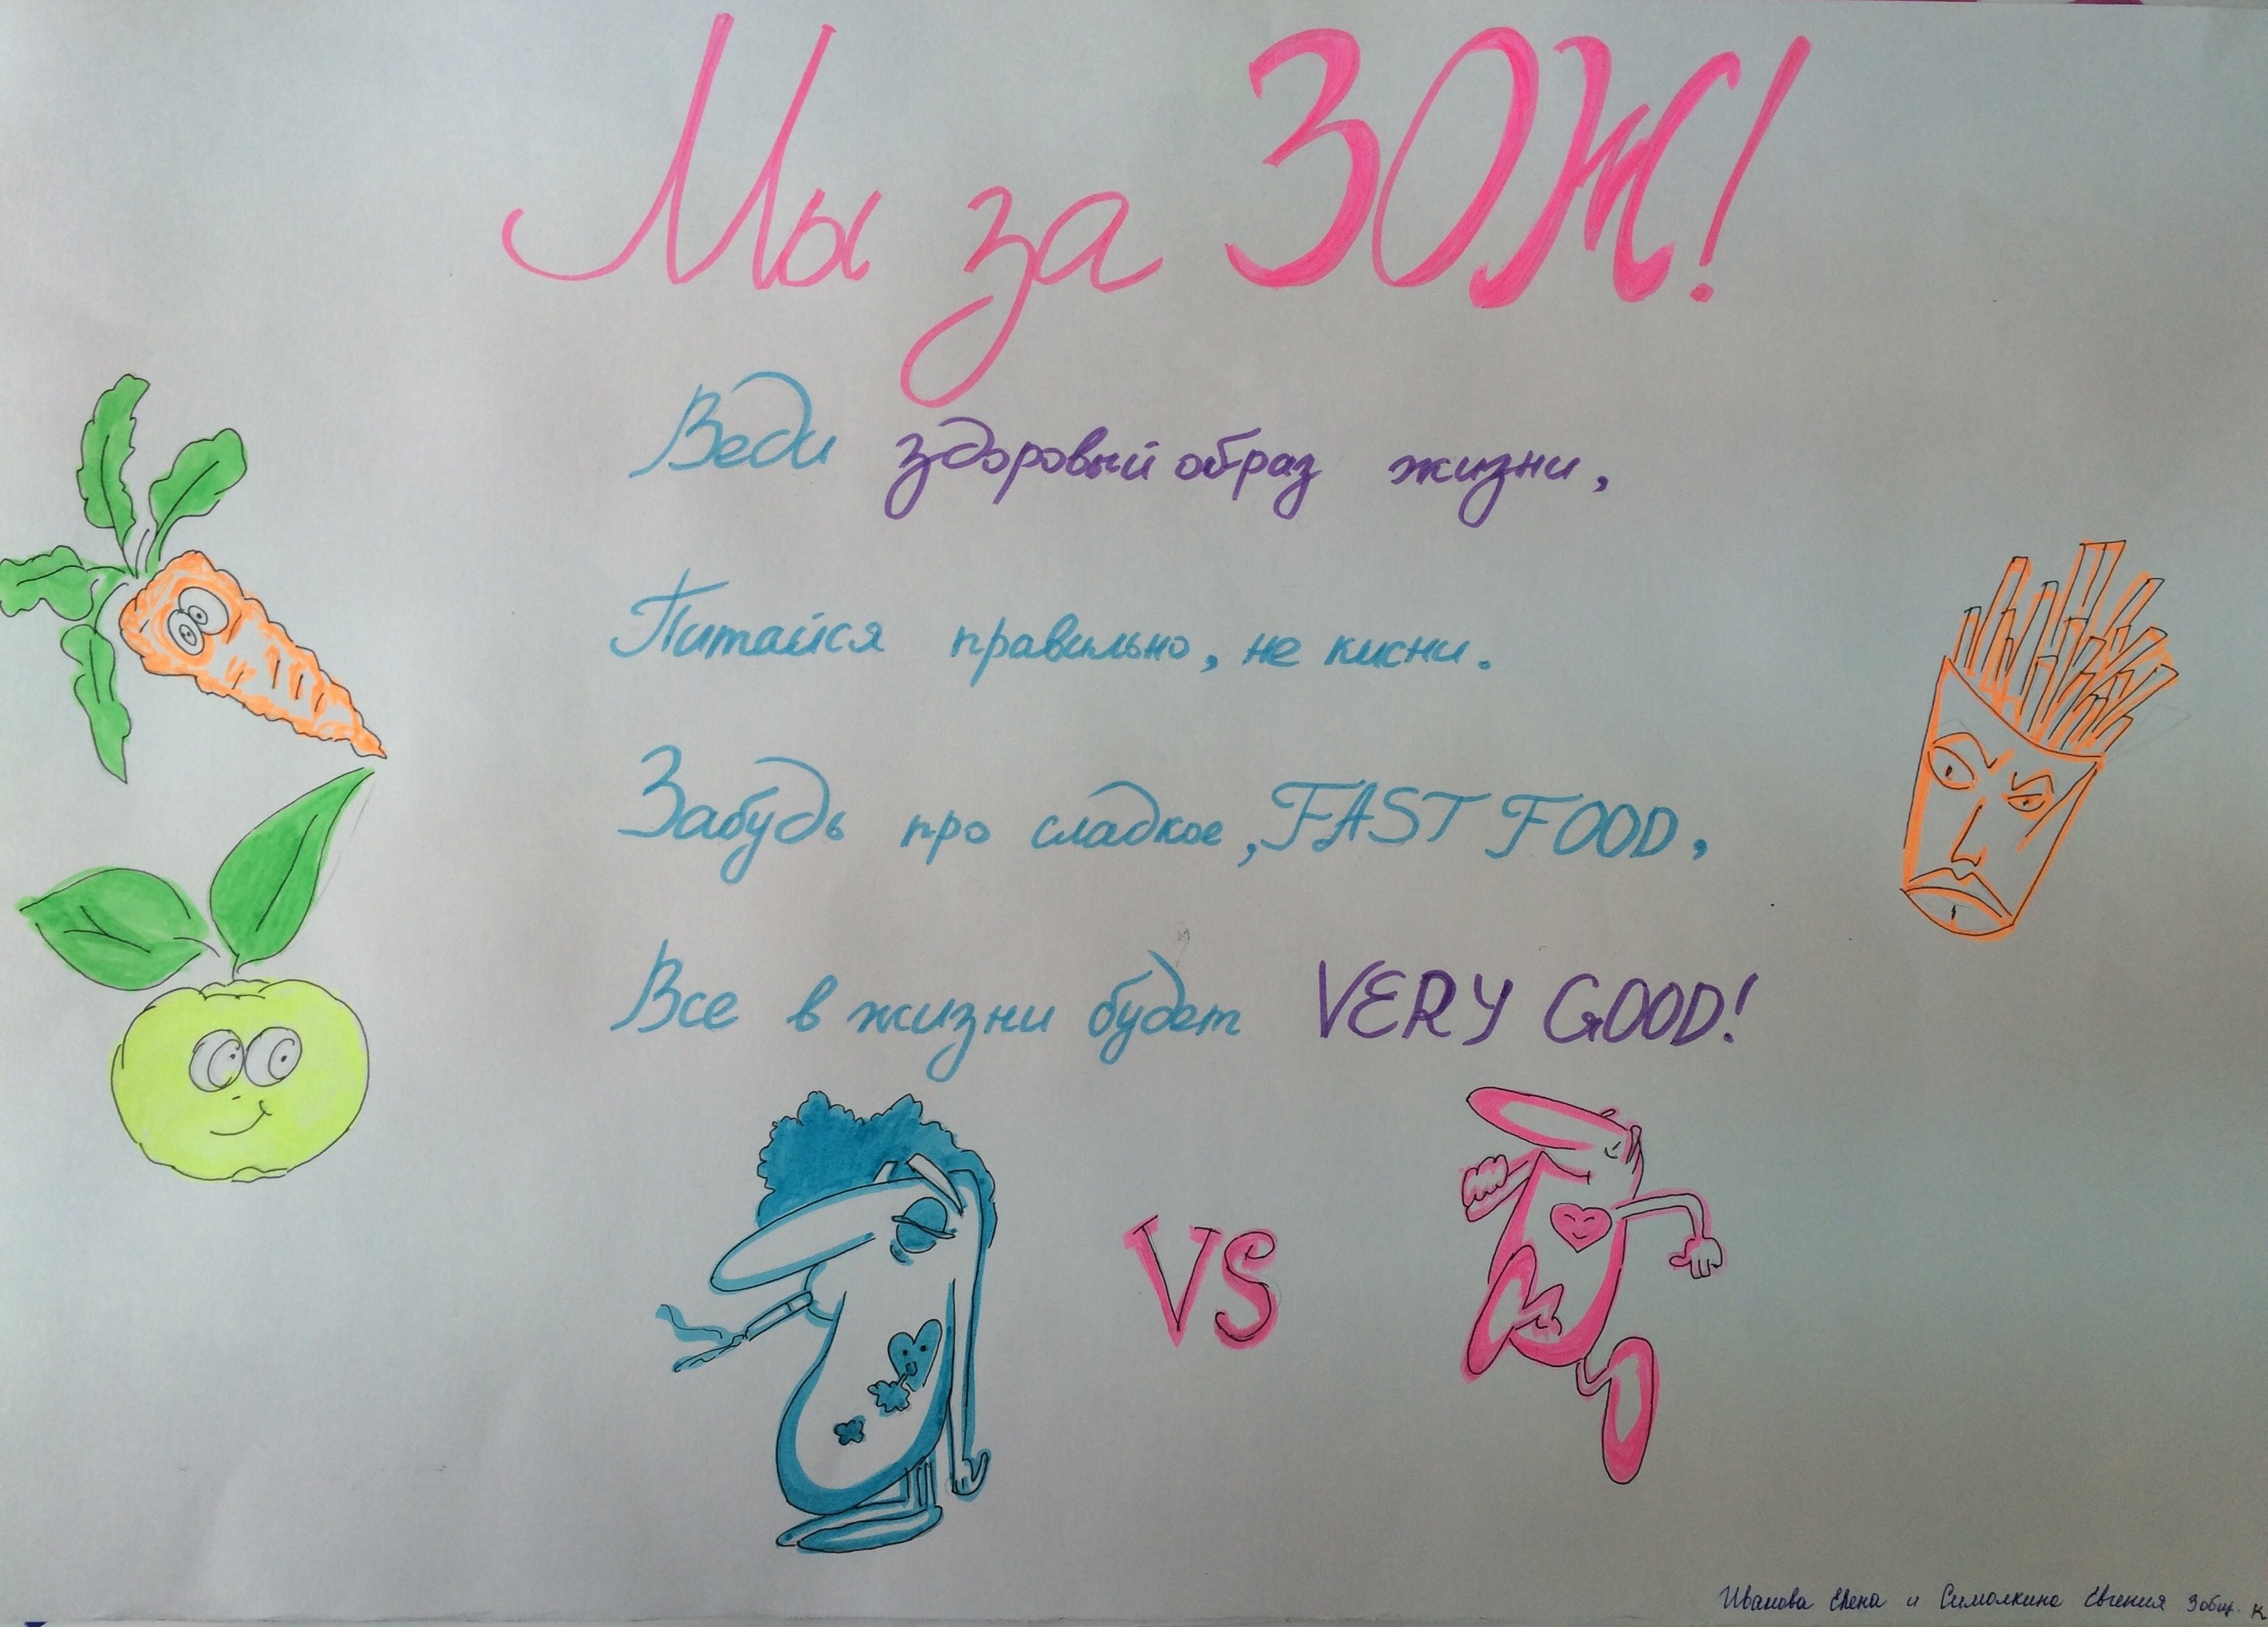 Мы за ЗОЖ!
Веди здоровый образ жизни,
Питайся правильно, не кисни.
Забудь про сладкое, FAST FOOD,
Все в жизни будет VERY GOOD!
VS
Иванова Елена и Симолкина Евгения 3 общ. к